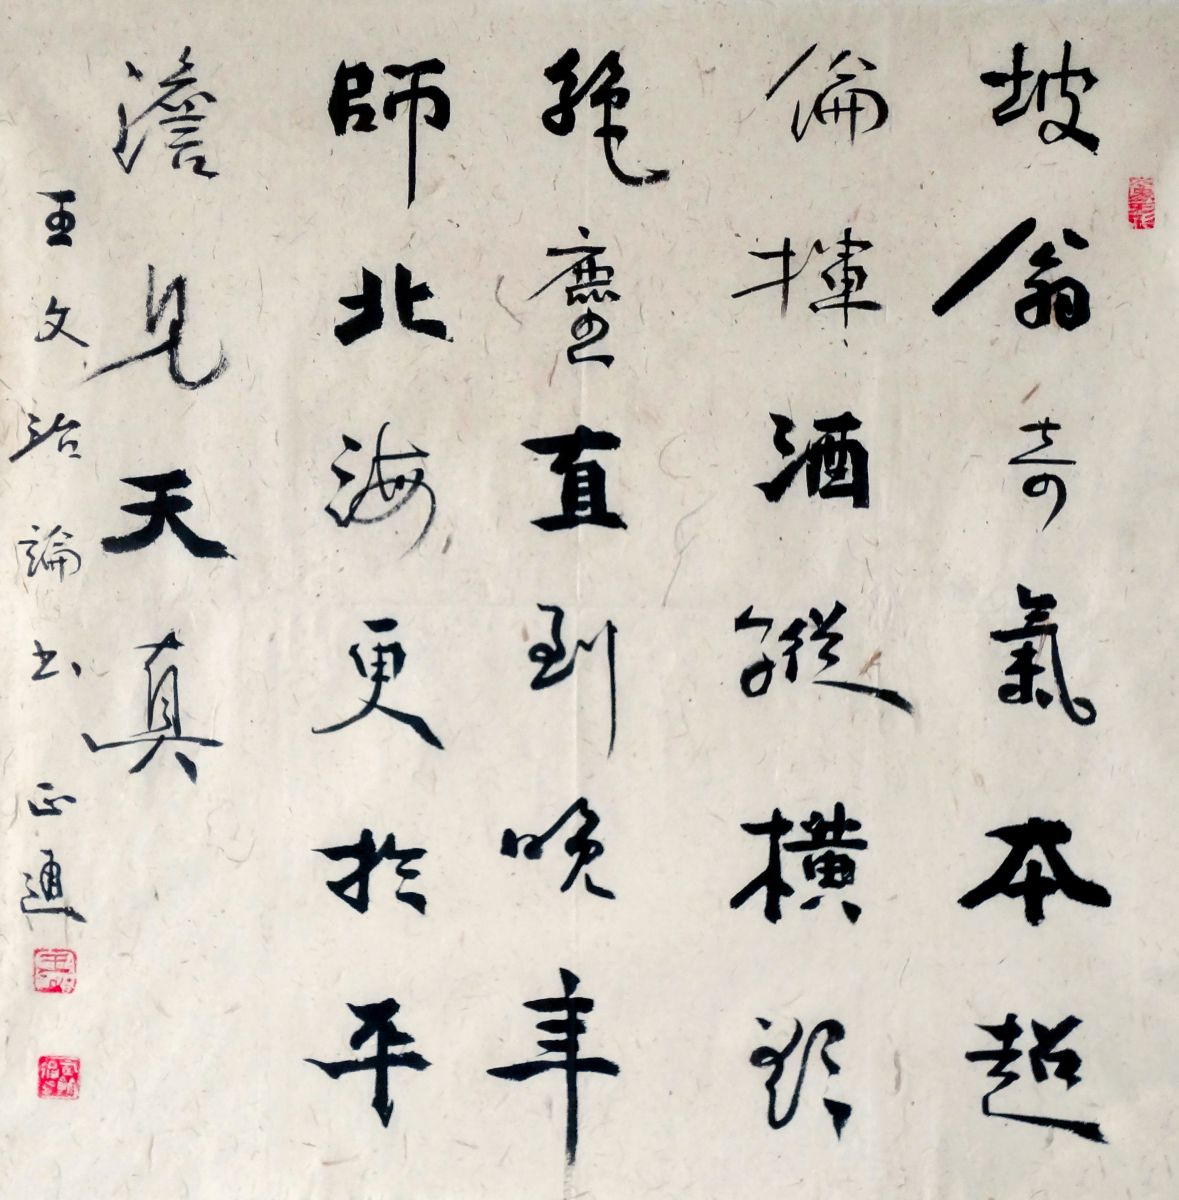 坡翁奇氣本超
倫揮洒縱橫欲
絕塵直到晚年
師北海更於平
澹見天真
王文治論書 正通